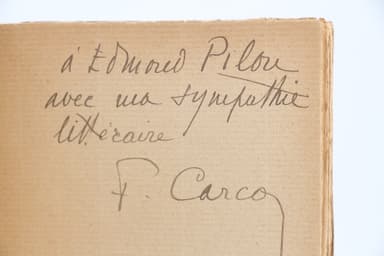 à Edmond Pilon
avec ma sympathie
littéraire
F. Carco